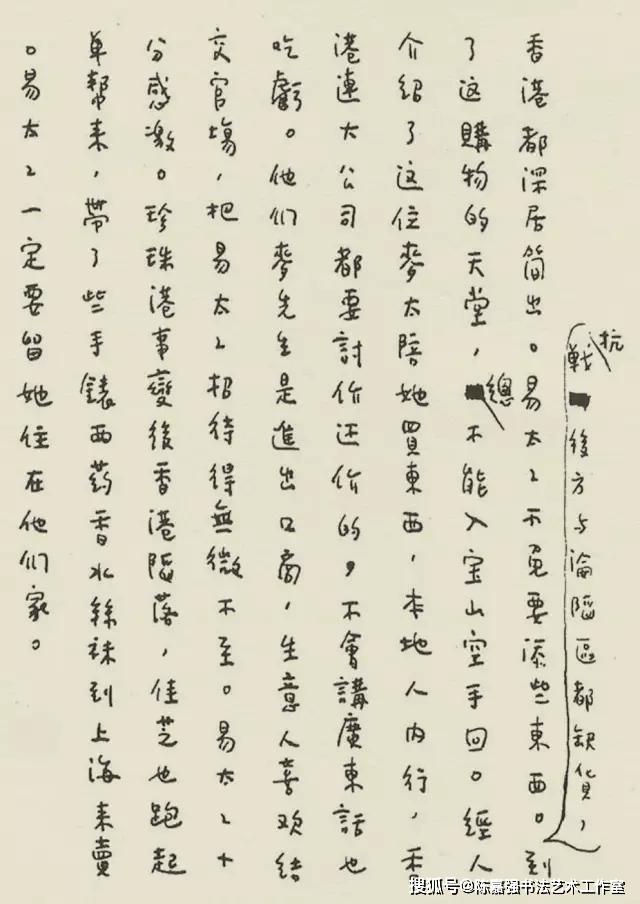 抗戰後方与淪陷區都缺貨，
香港都深居简出。易太〻不免要添些東西。到
了这購物的天堂，總不能入宝山空手回。經人
介紹了这位麥太陪她買東西，本地人内行，香
港連大公司都要討价还价的，不會講廣東話也
吃虧。他们麥先生是進出口商，生意人喜欢结
交官場，把易太〻招待得無微不至。易太〻十
分感激。珍珠港事變後香港陷落，佳芝也跑起
单幫来，帶了些手錶西葯香水絲袜到上海来賣
。易太〻一定要留她住在他们家。
搜狐号@陈嘉强书法艺术工作室